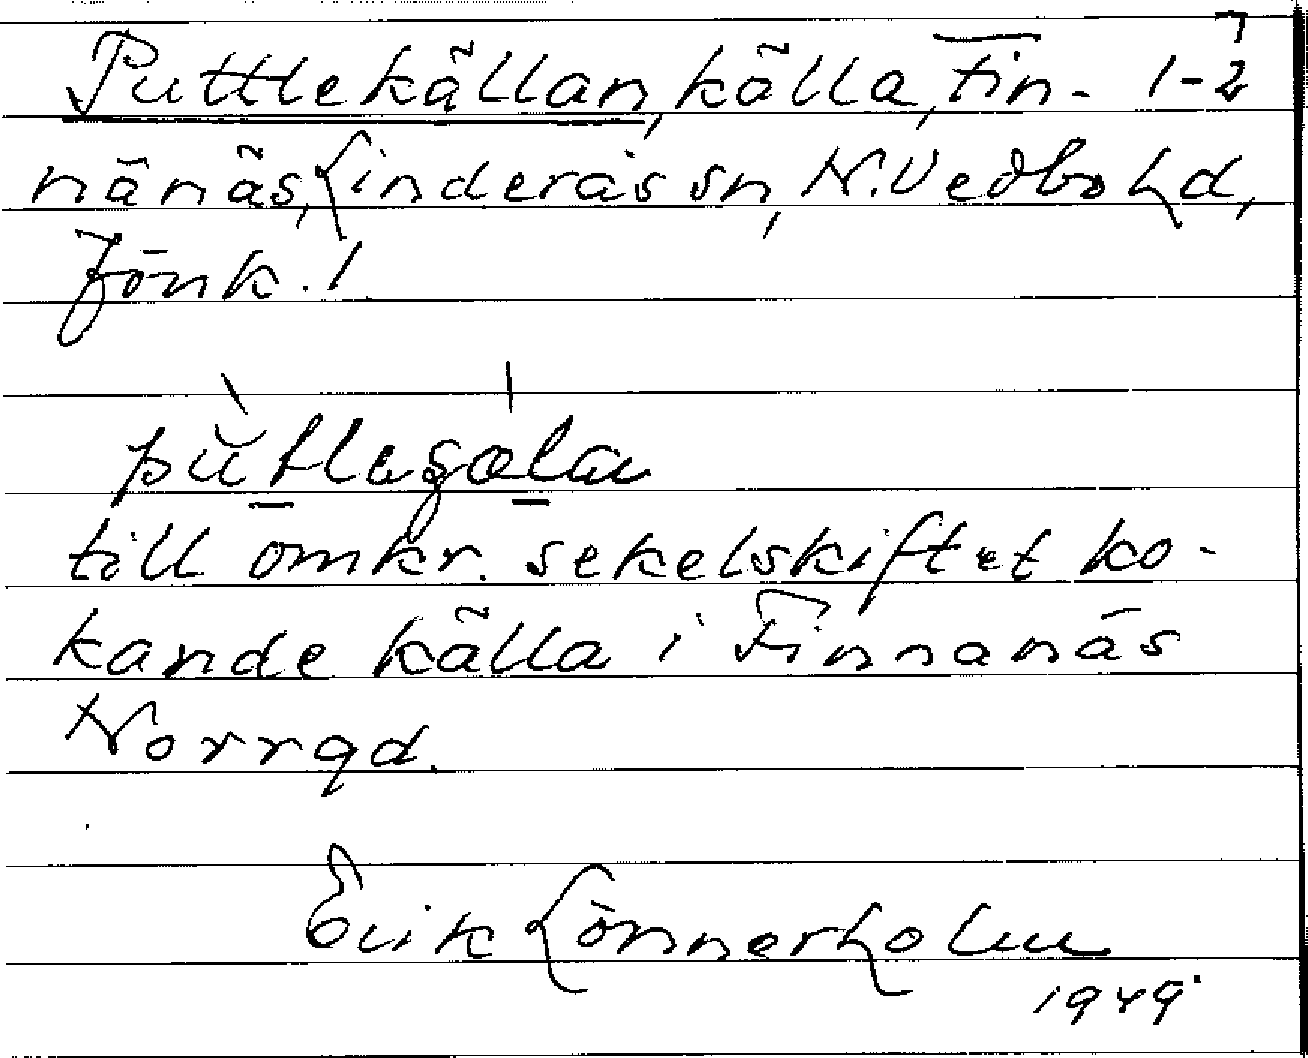 Puttlekällan, källa, Fin- 1-2
7
nänäs, Linderås sn, N. Vedbo hd,
Jönk. l
till omkr. sekelskiftet ko-
kande källa i Finnanäs
Norrgd.
Erik Lönnerholm
1949